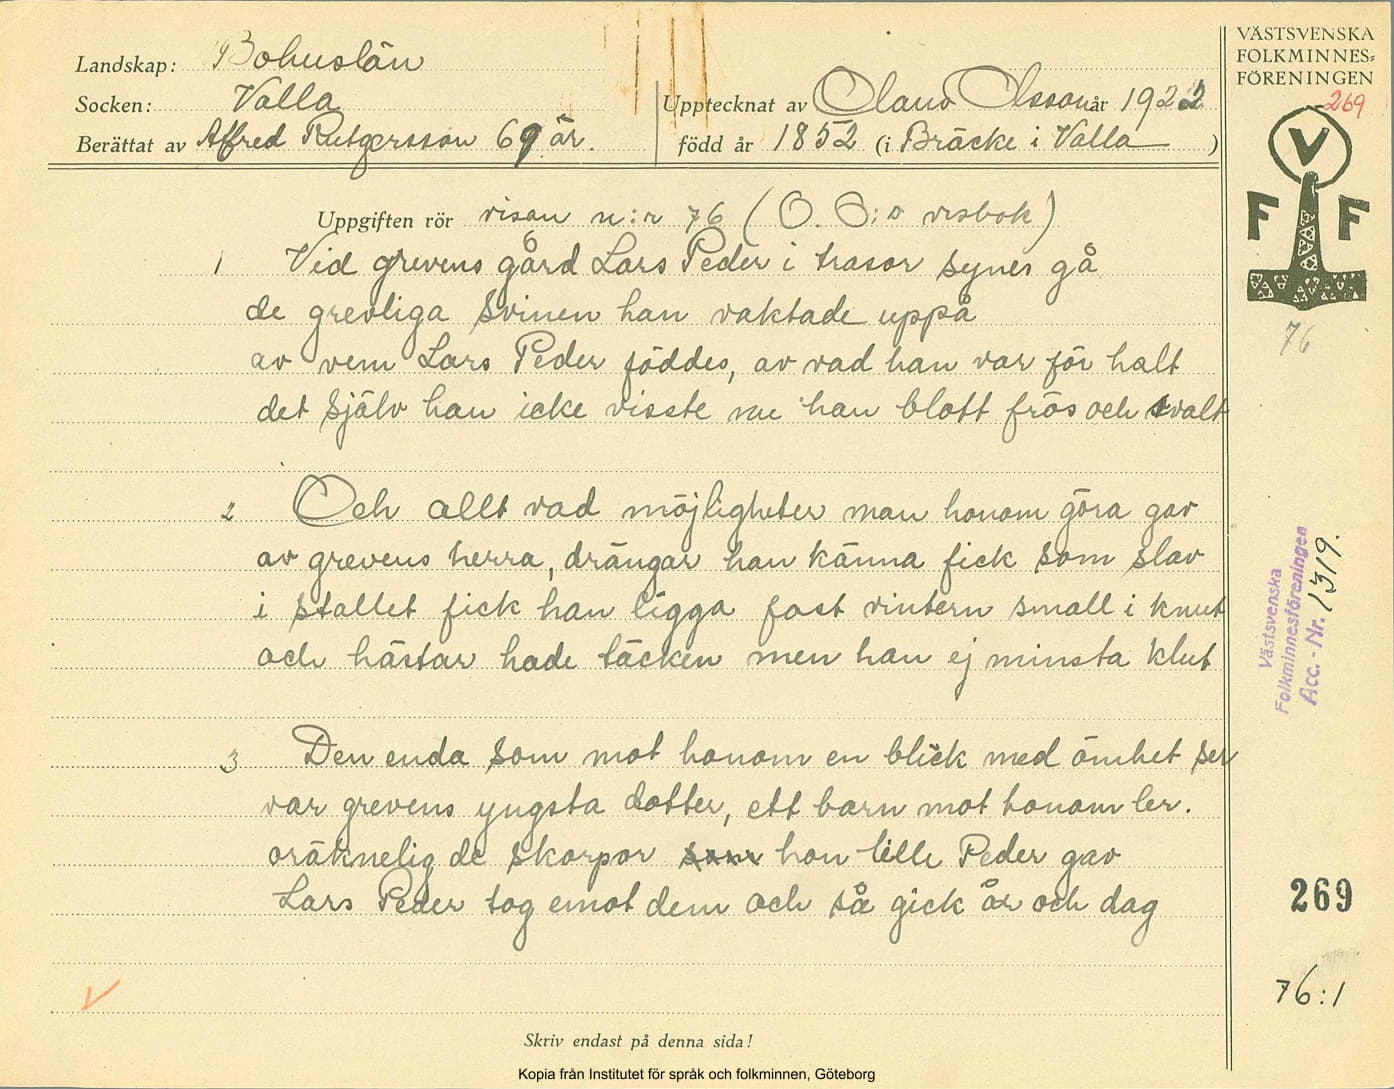 Landskap: Bohuslän
Socken: Valla
Berättat av Alfred Rutgersson 69 år.
Upptecknat av Olano Olsson år 1922
född år 1852 (i Bräcke i Valla )
VÄSTSVENSKA
FOLKMINNES=
FÖRENINGEN
269
V
F F
76
Uppgiften rör visan n:r 76 (O. O:s visbok)
1 Vid grevens gård Lars Peder i trasor synes gå
de grevliga svinen han vaktade uppå
av vem Lars Peder föddes, av vad han var för halt
det själv han icke visste me han blott frös och svalt
2 Och allt vad möjligheter man honom göra gav
av grevens herra, drängar han känna fick som slav
i stallet fick han ligga fast vintern small i knut
och hästar hade täcken men han ej minsta klut
3 Den enda som mot honom en blick med ömhet ser
var grevens yngsta dotter, ett barn mot honom ler.
oräknelig de skorpor som hon lille Peder gav
Lars Peder tog emot dem och så gick år och dag
Västsvenska
Folkminnesföreningen
Acc. - Nr. 1319.
269
76:1
Skriv endast på denna sida!
Kopia från Institutet för språk och folkminnen, Göteborg